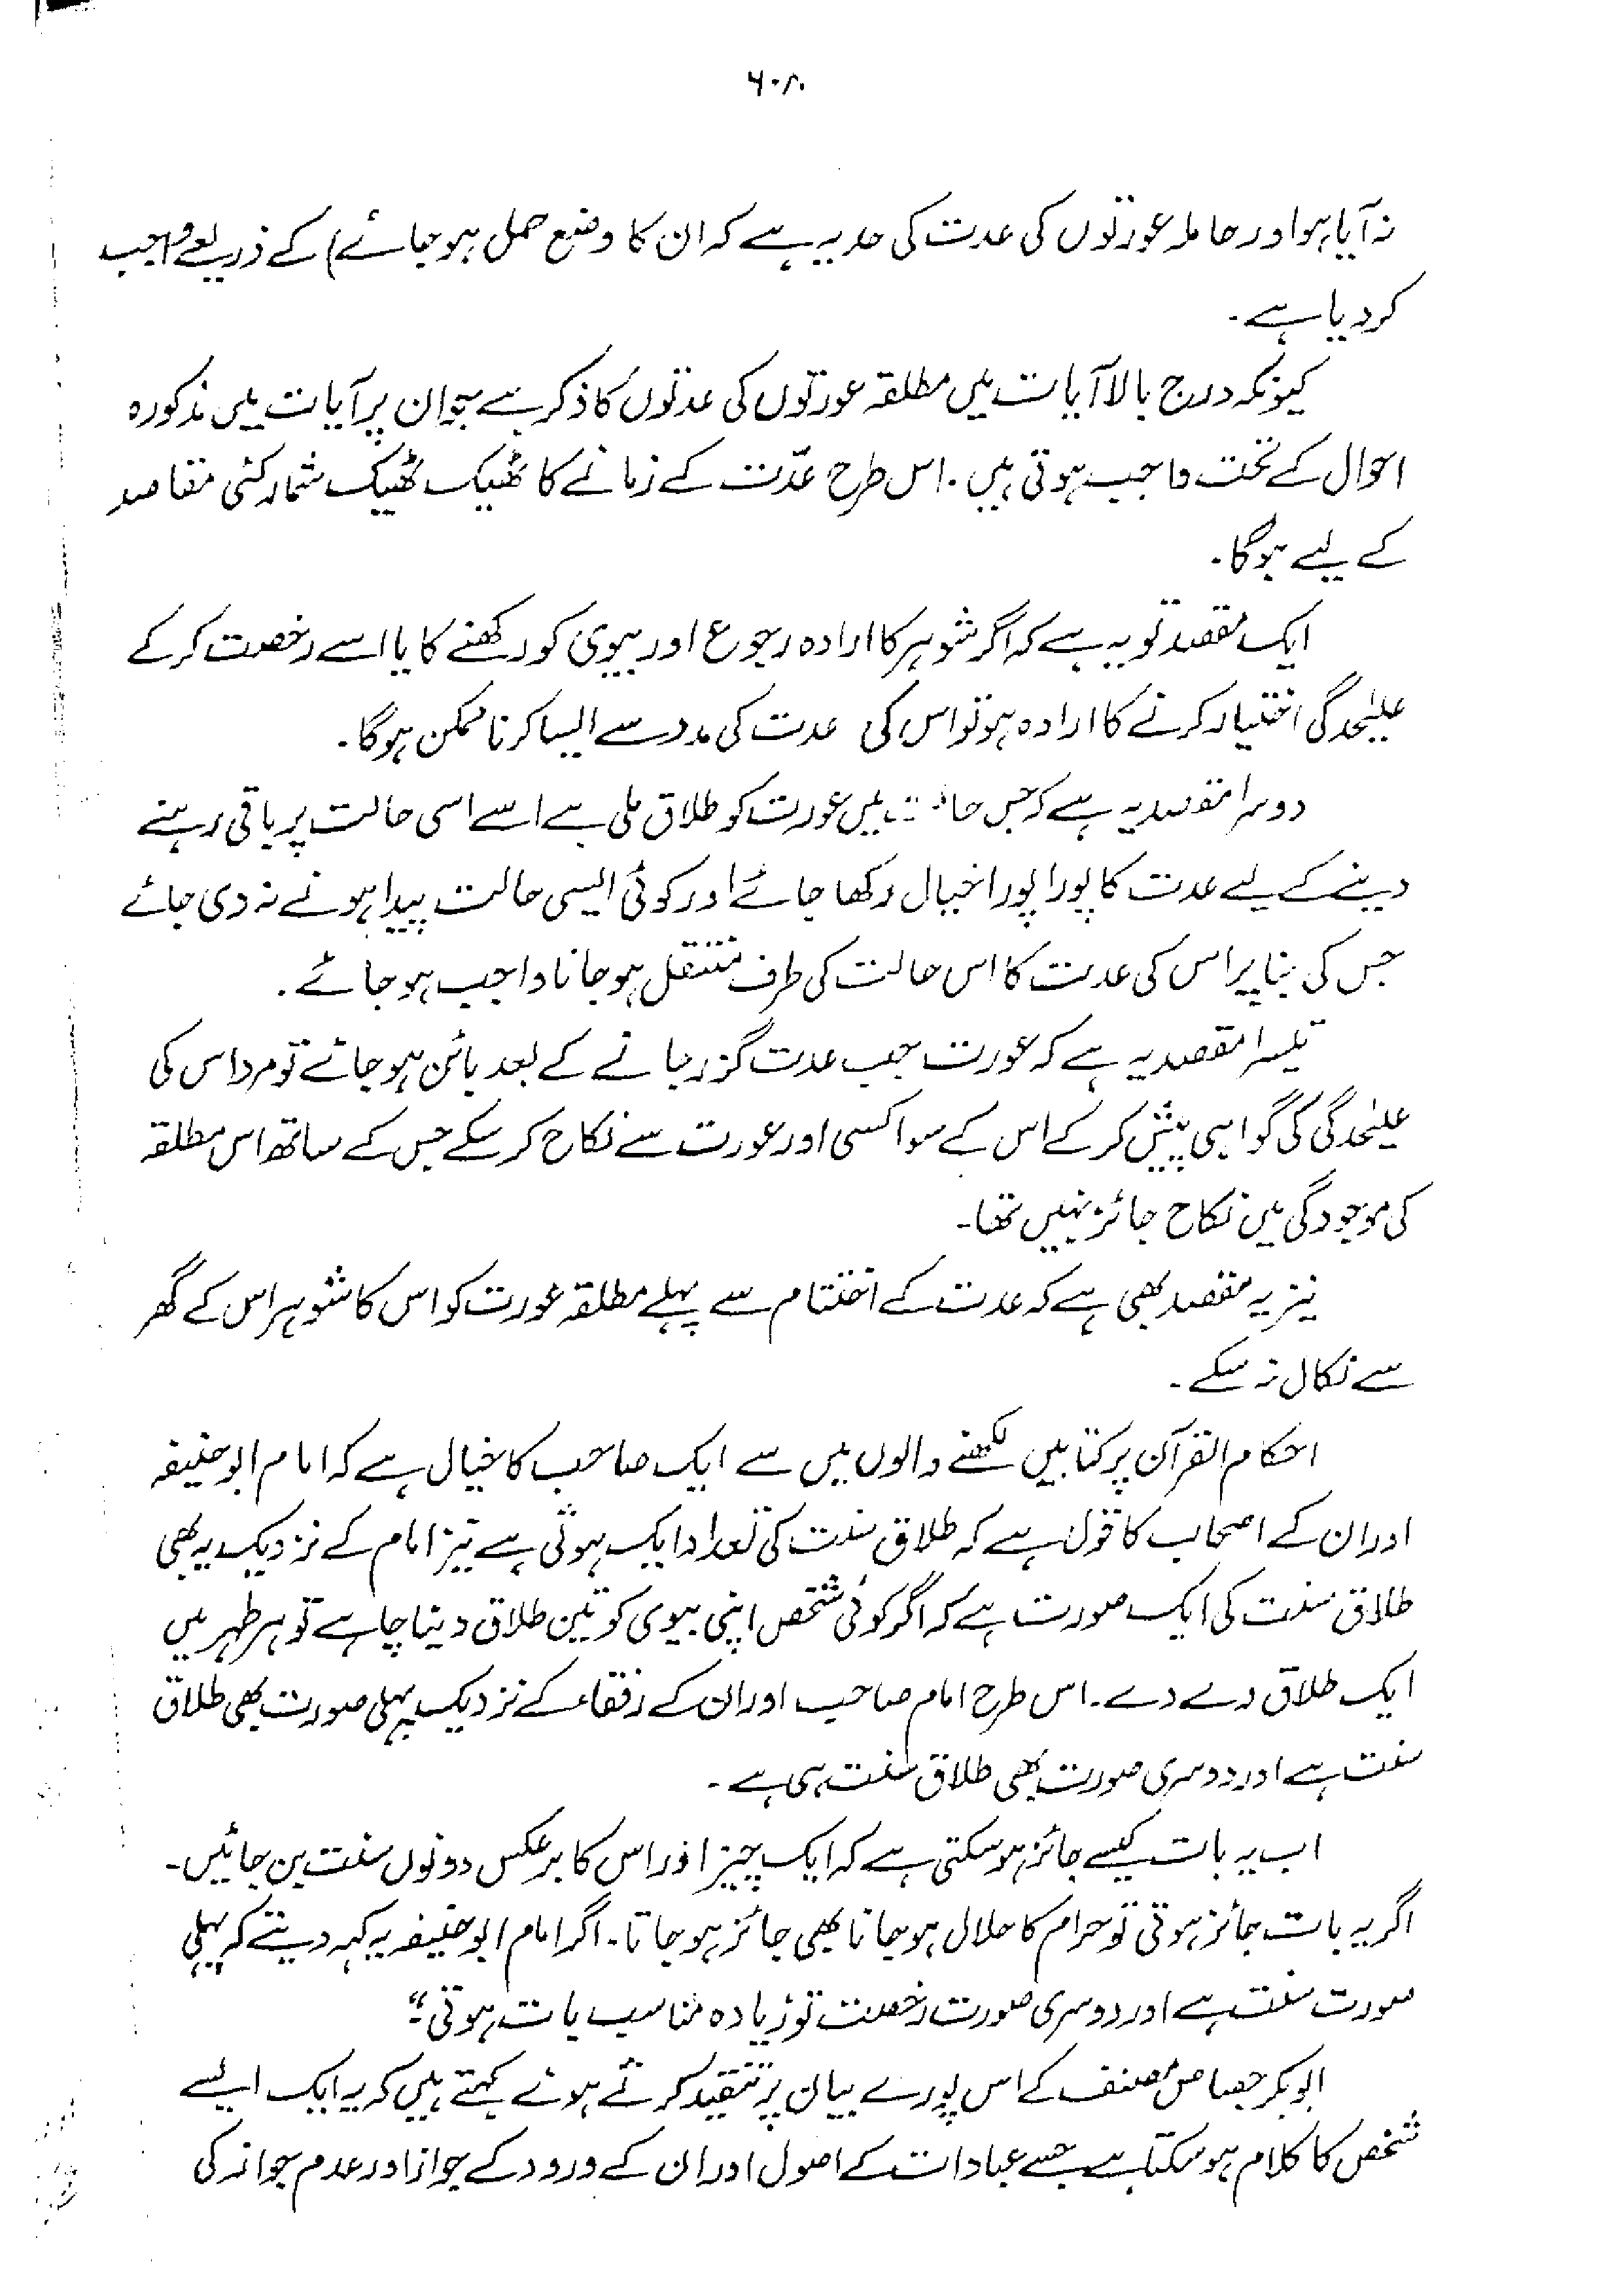 ۶۰۸
نہ آیا ہو اور حاملہ عورتوں کی عدت کی حد یہ ہے کہ ان کا وضع حمل ہو جائے) کے ذریعے واجب
کردیا ہے۔
کیونکہ درج بالا آیات میں مطلقہ عورتوں کی عدتوں کا ذکر ہے جو ان پر آیات میں مذکورہ
احوال کے تحت واجب ہوتی ہیں۔ اس طرح عدّت کے زمانے کا ٹھیک ٹھیک شمار کئی مقاصد
کے لیے ہوگا۔
ایک مقصد تو یہ ہے کہ اگر شوہر کا ارادہ رجوع اور بیوی کو رکھنے کا یا اسے رخصت کر کے
علیٰحدگی اختیار کرنے کا ارادہ ہو تو اس کی عدت کی مدد سے ایسا کرنا ممکن ہوگا۔
دوسرا مقصد یہ ہے کہ جس حالت میں عورت کو طلاق ملی ہے اسے اسی حالت پر باقی رہنے
دینے کے لیے عدت کا پورا پورا خیال رکھا جائے اور کوئی ایسی حالت پیدا ہونے نہ دی جائے
جس کی بنا پر اس کی عدت کا اس حالت کی طرف منتقل ہو جانا واجب ہو جائے۔
تیسرا مقصد یہ ہے کہ عورت جب عدت گزر جانے کے بعد بائن ہو جائے تو مرد اس کی
علیٰحدگی کی گواہی پیش کر کے اس کے سوا کسی اور عورت سے نکاح کر سکے جس کے ساتھ اس مطلقہ
کی موجودگی میں نکاح جائز نہیں تھا۔
نیز یہ مقصد بھی ہے کہ عدت کے اختتام سے پہلے مطلقہ عورت کو اس کا شوہر اس کے گھر
سے نکال نہ سکے۔
احکام القرآن پر کتابیں لکھنے والوں میں سے ایک صاحب کا خیال ہے کہ امام ابوحنیفہ
اور ان کے اصحاب کا قول ہے کہ طلاق سنت کی تعداد ایک ہوتی ہے نیز امام کے نزدیک یہ بھی
طلاق سنت کی ایک صورت ہے کہ اگر کوئی شخص اپنی بیوی کو تین طلاق دینا چاہے تو ہر طہر میں
ایک طلاق دے دے۔ اس طرح امام صاحب اور ان کے رفقاء کے نزدیک پہلی صورت بھی طلاق
سنت ہے اور دوسری صورت بھی طلاق سنت ہی ہے۔
اب یہ بات کیسے جائز ہو سکتی ہے کہ ایک چیز اور اس کا برعکس دونوں سنت بن جائیں۔
اگر یہ بات جائز ہوتی تو حرام کا حلال ہو جانا بھی جائز ہو جاتا۔ اگر امام ابوحنیفہ یہ کہہ دیتے کہ پہلی
صورت سنت ہے اور دوسری صورت رخصت تو زیادہ مناسب بات ہوتی“
ابوبکر جصاص مصنف کے اس پورے بیان پر تنقید کرتے ہوئے کہتے ہیں کہ یہ ایک ایسے
شخص کا کلام ہو سکتا ہے جسے عبادات کے اصول اور ان کے ورود کے جواز اور عدم جواز کی